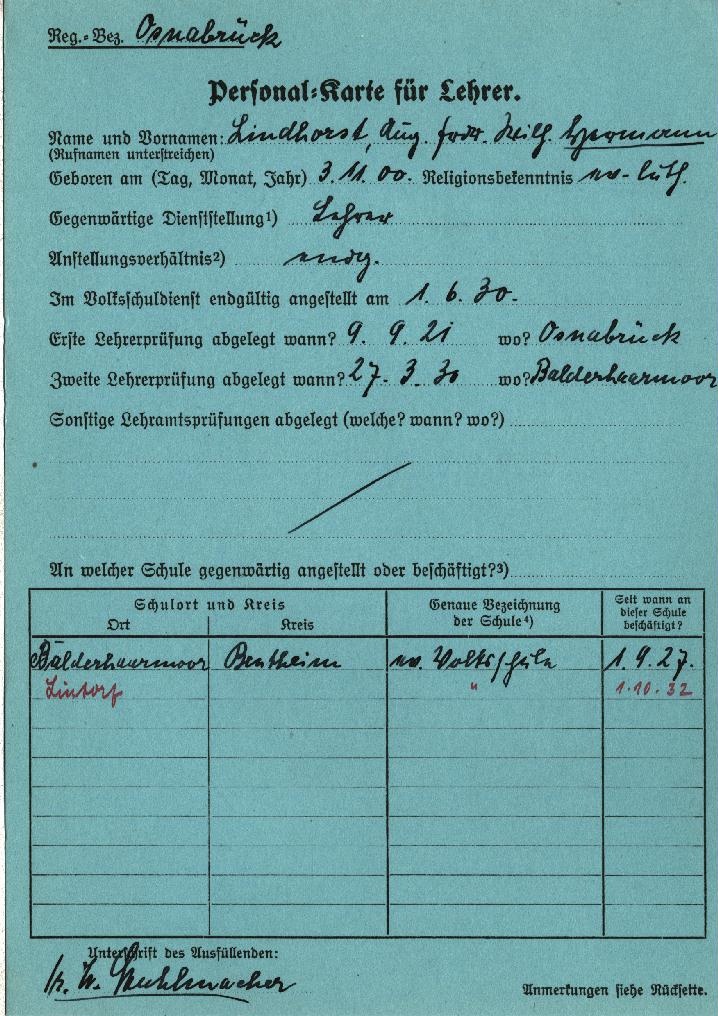 Reg.-Bez. Osnabrück
Personal-Karte für Lehrer.
Name und Vornamen: Lindhorst, Aug. Fridr. Wilh. Hermann
(Rufnamen unterstreichen)
Geboren am (Tag, Monat, Jahr) 3. 11. 00. Religionsbekenntnis ev-luth.
Gegenwärtige Dienststellung¹) Lehrer
Anstellungsverhältnis²) endg.
Im Volksschuldienst endgültig angestellt am 1. 6. 30.
Erste Lehrerprüfung abgelegt wann? 9. 9. 21 wo? Osnabrück
Zweite Lehrerprüfung abgelegt wann? 27. 3. 30 wo? Balderhaarmoor
Sonstige Lehramtsprüfungen abgelegt (welche? wann? wo?)
An welcher Schule gegenwärtig angestellt oder beschäftigt?³)
Schulort und Kreis Genaue Bezeichnung der Schule⁴) Seit wann an dieser Schule beschäftigt?
Ort Kreis
Balderhaarmoor Bentheim ev. Volksschule 1. 9. 27.
Lintorf " 1. 10. 32
Unterschrift des Ausfüllenden:
Anmerkungen siehe Rückseite.